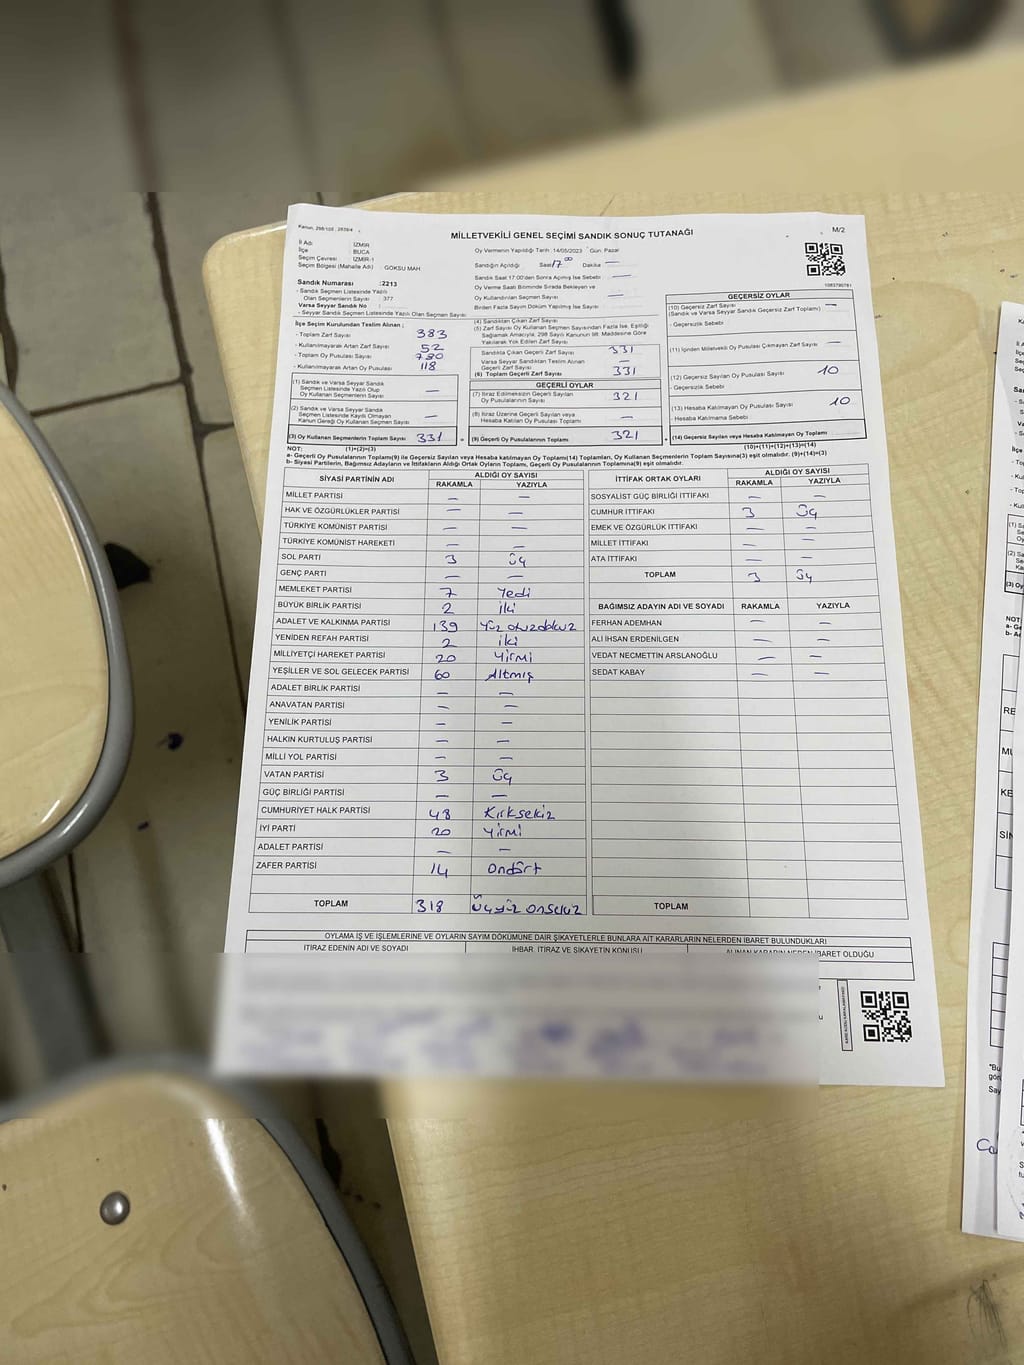 Kanun, 298/105 , 2839/4
MİLLETVEKİLİ GENEL SEÇİMİ SANDIK SONUÇ TUTANAĞI
M/2
İl Adı : İZMİR
İlçe : BUCA
Seçim Çevresi : İZMİR-1
Seçim Bölgesi (Mahalle Adı) : GÖKSU MAH
Oy Vermenin Yapıldığı Tarih : 14/05/2023 Gün: Pazar
Sandığın Açıldığı Saat 17 00 Dakika —
Sandık Saat 17:00'den Sonra Açılmış İse Sebebi : —
Oy Verme Saati Bitiminde Sırada Bekleyen ve
Oy Kullandırılan Seçmen Sayısı : —
Birden Fazla Sayım Döküm Yapılmış İse Sayısı :
Sandık Numarası :2213
- Sandık Seçmen Listesinde Yazılı
Olan Seçmenlerin Sayısı : 377
Varsa Seyyar Sandık No :
- Seyyar Sandık Seçmen Listesinde Yazılı Olan Seçmen Sayısı:
İlçe Seçim Kurulundan Teslim Alınan ;
- Toplam Zarf Sayısı : 383
- Kullanılmayarak Artan Zarf Sayısı : 52
- Toplam Oy Pusulası Sayısı :
- Kullanılmayarak Artan Oy Pusulası : 118
(1) Sandık ve Varsa Seyyar Sandık
Seçmen Listesinde Yazılı Olup
Oy Kullanan Seçmenlerin Sayısı —
(2) Sandık ve Varsa Seyyar Sandık
Seçmen Listesinde Kayıtlı Olmayan
Kanun Gereği Oy Kullanan Seçmen Sayısı —
(3) Oy Kullanan Seçmenlerin Toplam Sayısı 331
(1)+(2)=(3)
(4) Sandıktan Çıkan Zarf Sayısı
(5) Zarf Sayısı Oy Kullanan Seçmen Sayısından Fazla İse, Eşitliği
Sağlamak Amacıyla, 298 Sayılı Kanunun 98. Maddesine Göre
Yakılarak Yok Edilen Zarf Sayısı
Sandıkta Çıkan Geçerli Zarf Sayısı 331
Varsa Seyyar Sandıktan Teslim Alınan
Geçerli Zarf Sayısı —
(6) Toplam Geçerli Zarf Sayısı 331
GEÇERLİ OYLAR
(7) İtiraz Edilmeksizin Geçerli Sayılan
Oy Pusulalarının Sayısı 321
(8) İtiraz Üzerine Geçerli Sayılan veya
Hesaba Katılan Oy Pusulası Toplamı —
(9) Geçerli Oy Pusulalarının Toplamı 321
1083790781
GEÇERSİZ OYLAR
(10) Geçersiz Zarf Sayısı —
(Sandık ve Varsa Seyyar Sandık Geçersiz Zarf Toplamı)
- Geçersizlik Sebebi
(11) İçinden Milletvekili Oy Pusulası Çıkmayan Zarf Sayısı —
(12) Geçersiz Sayılan Oy Pusulası Sayısı 10
- Geçersizlik Sebebi
(13) Hesaba Katılmayan Oy Pusulası Sayısı 10
- Hesaba Katılmama Sebebi
(14) Geçersiz Sayılan veya Hesaba Katılmayan Oy Toplamı
(10)+(11)+(12)+(13)=(14)
NOT:
a- Geçerli Oy Pusulalarının Toplam(9) ile Geçersiz Sayılan veya Hesaba Katılmayan Oy Toplamı(14) Toplamları, Oy Kullanan Seçmenlerin Toplam Sayısına(3) eşit olmalıdır. (9)+(14)=(3)
b- Siyasi Partilerin, Bağımsız Adayların ve İttifakların Aldığı Ortak Oyların Toplamı, Geçerli Oy Pusulalarının Toplamına(9) eşit olmalıdır.
SİYASİ PARTİNİN ADI ALDIĞI OY SAYISI
RAKAMLA YAZIYLA
MİLLET PARTİSİ — —
HAK VE ÖZGÜRLÜKLER PARTİSİ — —
TÜRKİYE KOMÜNİST PARTİSİ — —
TÜRKİYE KOMÜNİST HAREKETİ — —
SOL PARTİ 3 üç
GENÇ PARTİ — —
MEMLEKET PARTİSİ 7 Yedi
BÜYÜK BİRLİK PARTİSİ 2 iki
ADALET VE KALKINMA PARTİSİ 139 Yüz otuzdokuz
YENİDEN REFAH PARTİSİ 2 iki
MİLLİYETÇİ HAREKET PARTİSİ 20 Yirmi
YEŞİLLER VE SOL GELECEK PARTİSİ 60 Altmış
ADALET BİRLİK PARTİSİ — —
ANAVATAN PARTİSİ — —
YENİLİK PARTİSİ — —
HALKIN KURTULUŞ PARTİSİ — —
MİLLİ YOL PARTİSİ — —
VATAN PARTİSİ 3 üç
GÜÇ BİRLİĞİ PARTİSİ — —
CUMHURİYET HALK PARTİSİ 48 Kırksekiz
İYİ PARTİ 20 Yirmi
ADALET PARTİSİ — —
ZAFER PARTİSİ 14 Ondört
TOPLAM 318 Üçyüz onsekiz
İTTİFAK ORTAK OYLARI ALDIĞI OY SAYISI
RAKAMLA YAZIYLA
SOSYALİST GÜÇ BİRLİĞİ İTTİFAKI — —
CUMHUR İTTİFAKI 3 üç
EMEK VE ÖZGÜRLÜK İTTİFAKI — —
MİLLET İTTİFAKI — —
ATA İTTİFAKI — —
TOPLAM 3 üç
BAĞIMSIZ ADAYIN ADI VE SOYADI RAKAMLA YAZIYLA
FERHAN ADEMHAN — —
ALİ İHSAN ERDENİLGEN — —
VEDAT NECMETTİN ARSLANOĞLU — —
SEDAT KABAY — —
TOPLAM
OYLAMA İŞ VE İŞLEMLERİNE VE OYLARIN SAYIM DÖKÜMÜNE DAİR ŞİKAYETLERLE BUNLARA AİT KARARLARIN NELERDEN İBARET BULUNDUKLARI
İTİRAZ EDENİN ADI VE SOYADI İHBAR, İTİRAZ VE ŞİKAYETİN KONUSU ALINAN KARARIN NEDEN İBARET OLDUĞU